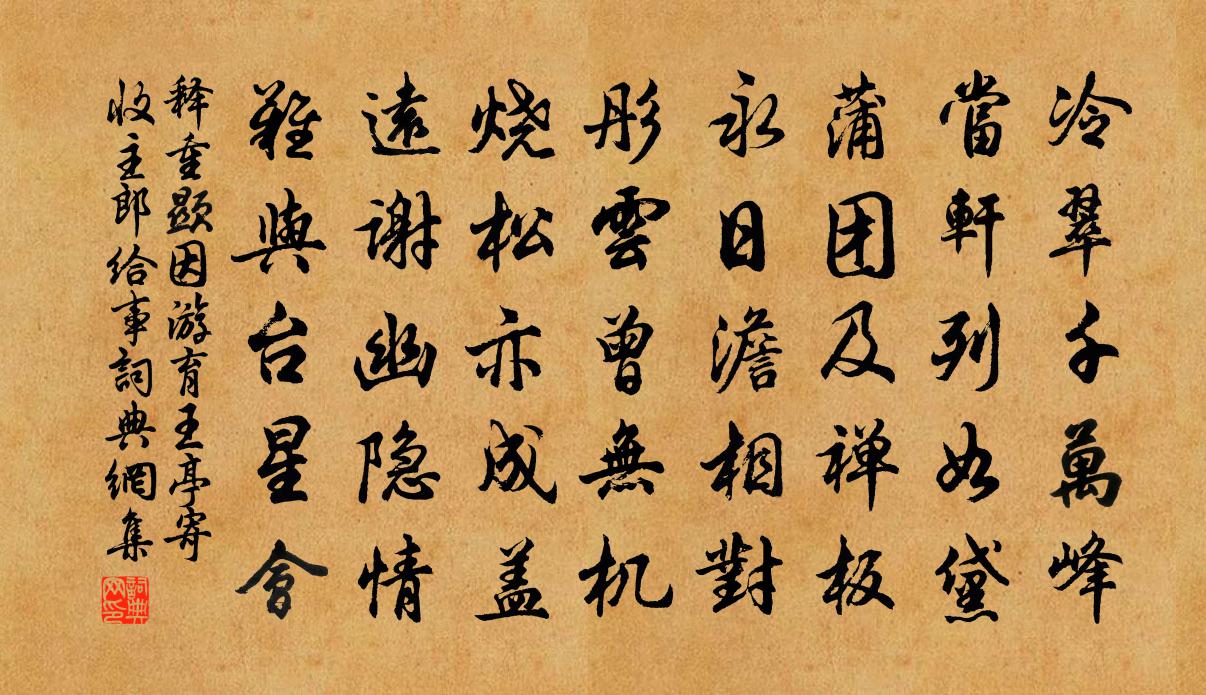 冷翠千萬峰
當軒列如黛
蒲团及禅板
永日澹相對
彤雲曾無机
烧松亦成盖
遠謝幽隐情
難與台星會
释重顯因游育王亭寄
收主郎给事詞典網集
詞典网印